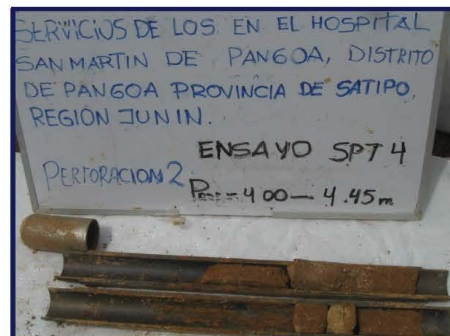 SERVICIUS DE LOS EN EL HOSPITAL
SAN MARTIN DE PANGOA, DISTRITO
DE PANGOA PROVINCIA DE SATIPO,
REGIÓN JUNIN.
ENSAYO SPT 4
PERFORACION 2
4.00 — 4.45m